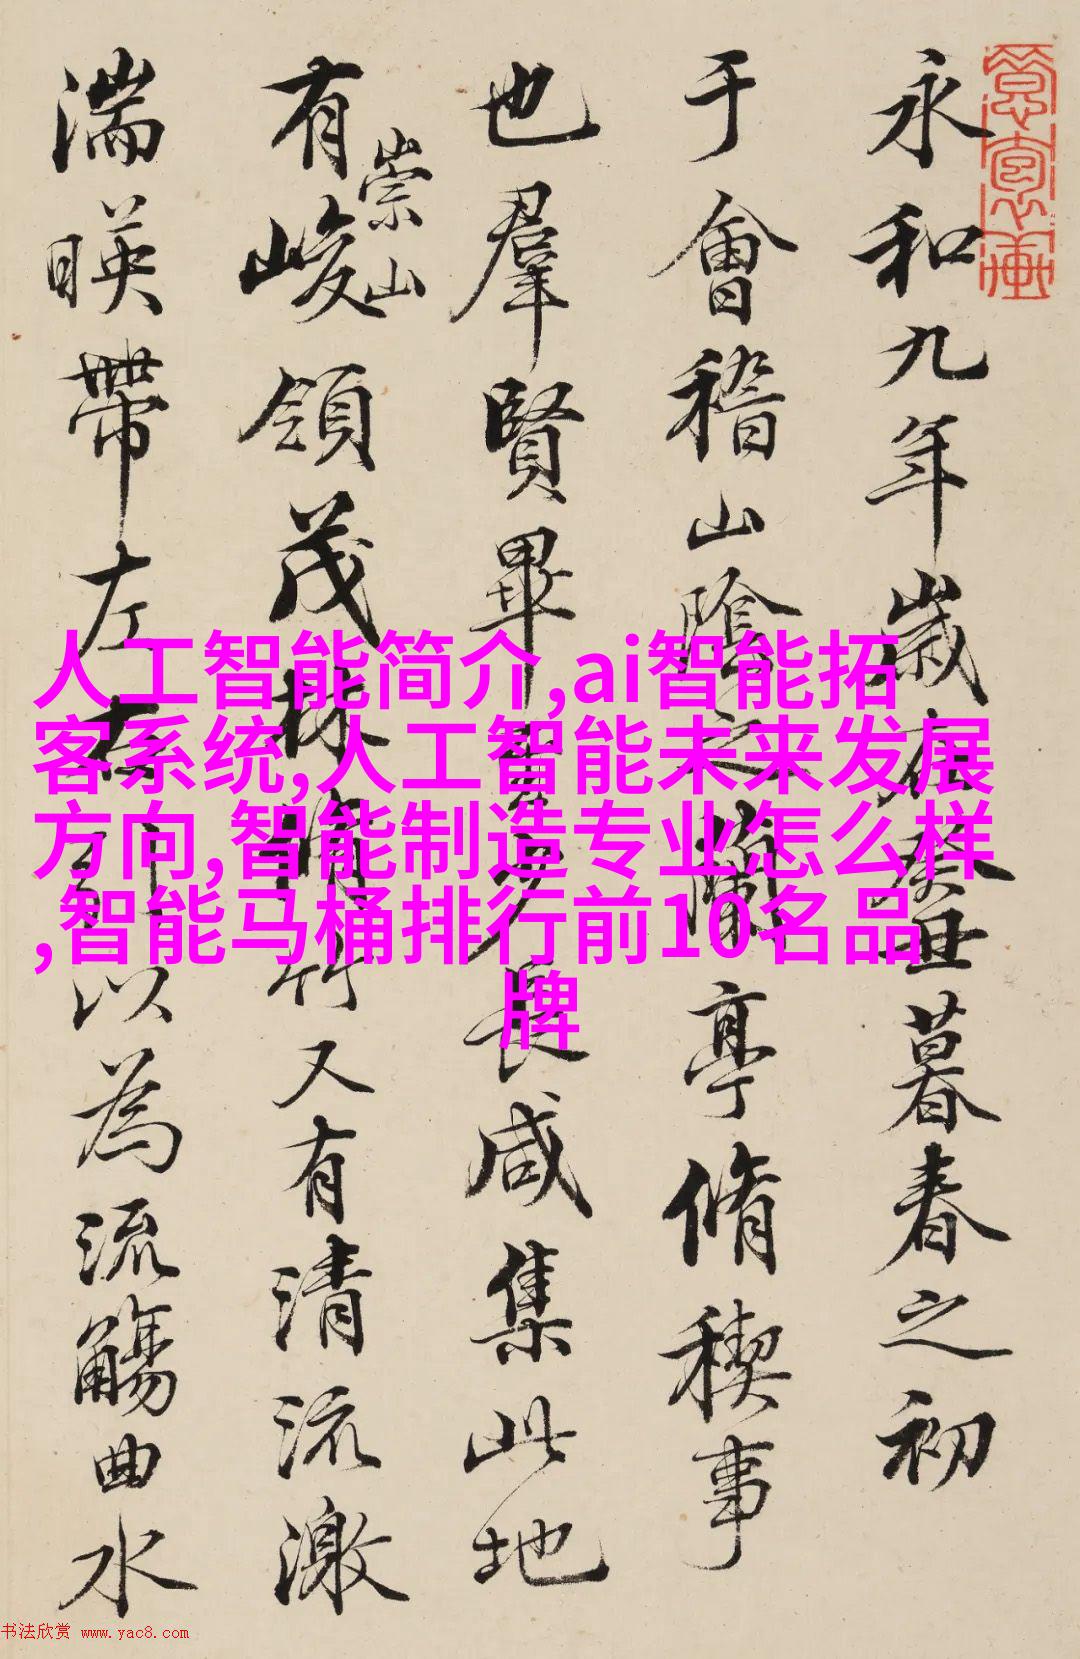 永和九年歲在癸丑暮春之初
于會稽山陰之蘭亭脩稧事
也羣賢畢至少長咸集此地
有崇山峻領茂林脩竹又有清流激
湍暎帶左右引以為流觴曲水
人工智能简介,ai智能拓
客系统,人工智能未来发展
方向,智能制造专业怎么样
,智能马桶排行前10名品
牌
书法欣赏 www.yac8.com